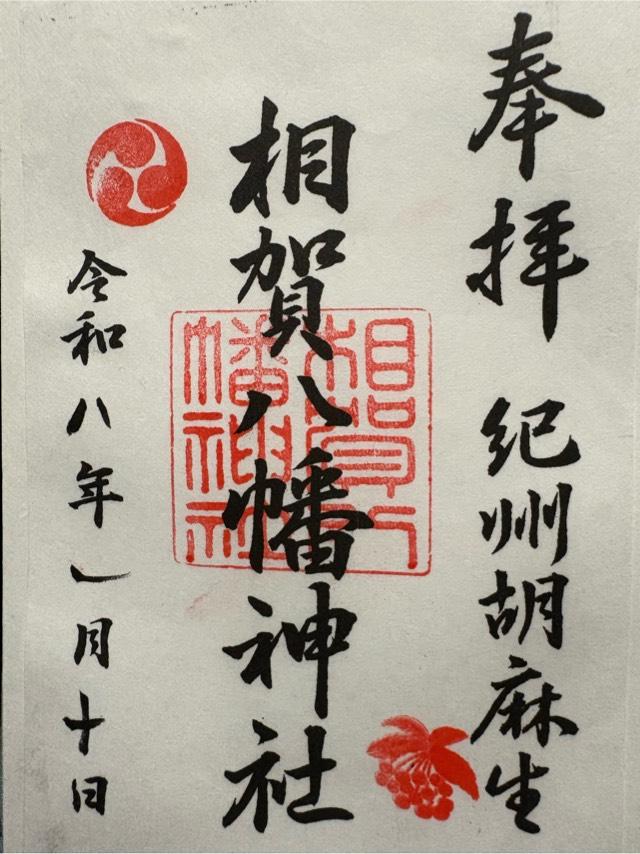 奉拝 紀州胡麻生
相賀八幡神社
相賀八幡神社
令和八年一月十日